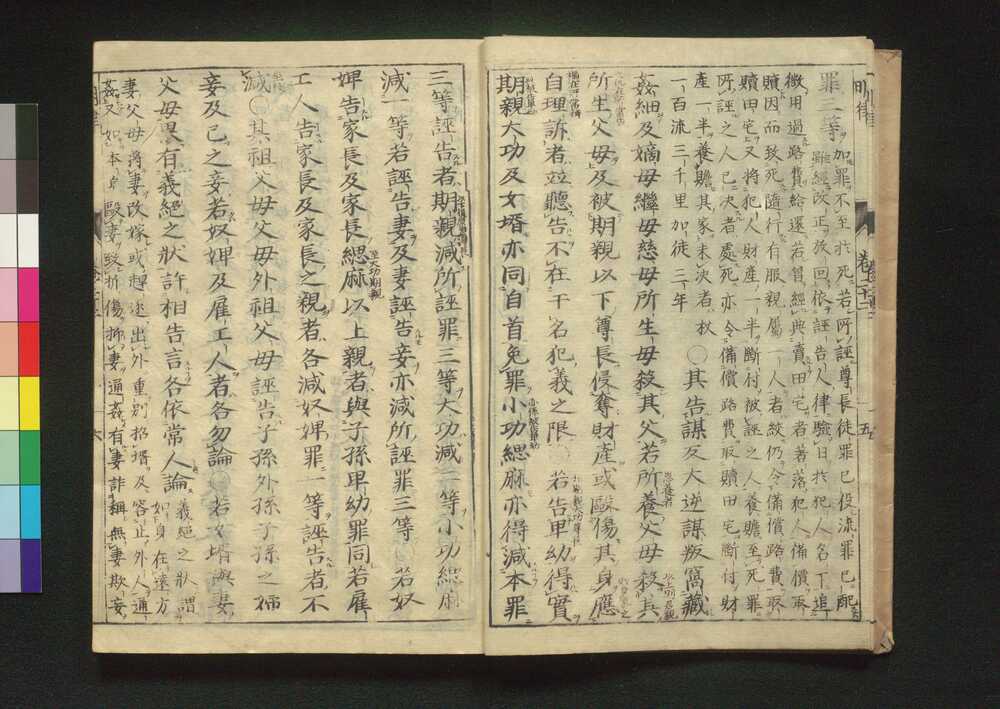 明律 卷二十二 五
罪三等
加罪不至於死若所誣尊長徒罪已役流罪已配
雖經改正放回依誣告人律驗日於犯人名下追
徵用過路費給還若曾經典賣田宅者著落犯人備價取
贖因而致死隨行有服親屬一人者絞仍令備償路費取
贖田宅又將犯人財產一半斷付被誣之人養贍至死罪
所誣之人已決者處死亦令備償路費取贖田宅斷付財
產一半養贍其家未決者杖
一百流三千里加徒三年
○其告謀反大逆謀叛窩藏
姦細及嫡母繼母慈母所生母殺其父若所養父母殺其
所生父母及被期親以下尊長侵奪財產或毆傷其身應
自理訴者竝聽告不在干名犯義之限○若告卑幼得實
期親大功及女壻亦同自首免罪小功緦麻亦得減本罪
三等誣告者期親減所誣罪三等大功減二等小功緦麻
減一等若誣告妻及妻誣告妾亦減所誣罪三等○若奴
婢告家長及家長緦麻以上親者與子孫卑幼罪同若雇
工人告家長及家長之親者各減奴婢罪一等誣告者不
減○其祖父母父母外祖父母誣告子孫外孫子孫之婦
妾及己之妾若奴婢及雇工人者各勿論○若女壻與妻
父母果有義絕之狀許相告言各依常人論
義絕之狀謂
如身在遠方
妻父母將妻改嫁或趕逐出外重別招壻及容止外人通
姦又如本身毆妻致折傷抑妻通姦有妻詐稱無妻欺妄
六